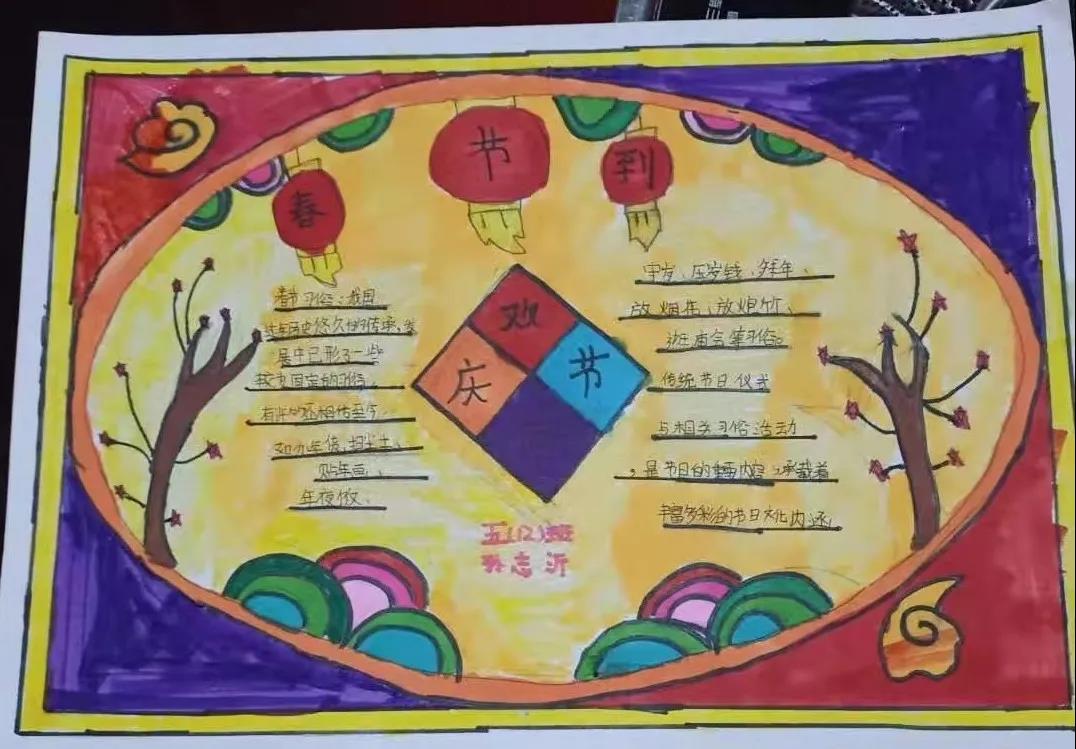 春节到
春节习俗:我国
过年历史悠久,传承,发
展中已形了一些
较为固定的习俗、
有许多还相传至今、
如办年货、扫尘土、
贴年画、
年夜饭、
欢
庆 节
守岁、压岁钱、拜年、
放烟花、放炮竹、
逛庙会等习俗。
传统节日仪式
与相关习俗活动
,是节日的重要内容,承载着
丰富多彩的节日文化内涵,
五(12)班
志沂